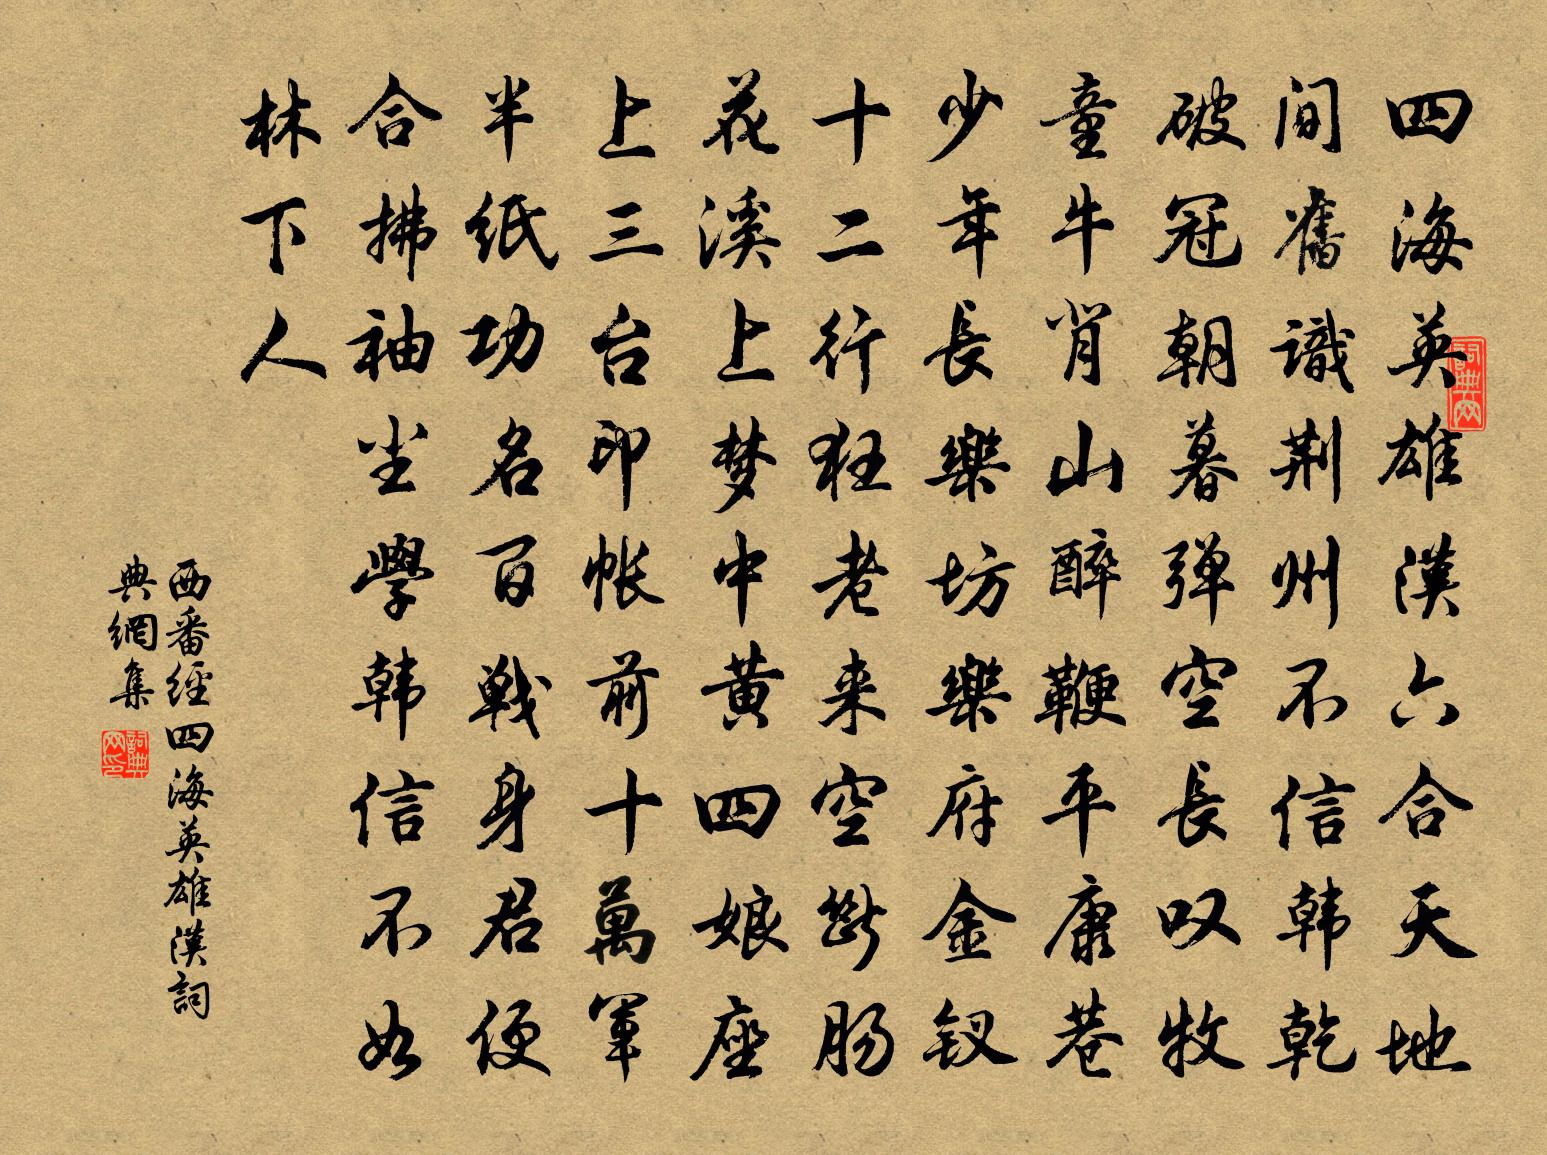 四海英雄漢六合天地
间舊識荆州不信韩乾
破冠朝暮弹空長叹牧
童牛背山醉鞭平康巷
少年長樂坊樂府金钗
十二行狂老来空斷肠
花溪上梦中黄四娘座
上三台印帐前十萬軍
半纸功名百戦身君便
合拂袖尘學韩信不如
林下人
西番經四海英雄漢詞
典網集